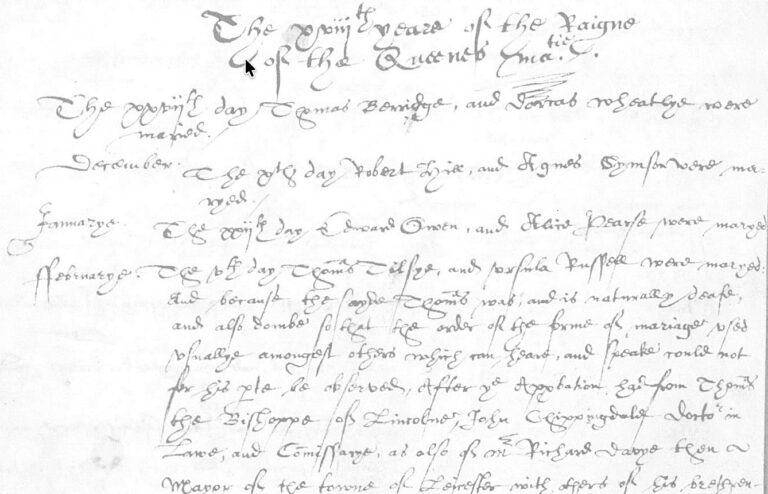 The xviijth yeare of the Raigne
of the Queenes Matie.
The xxvijth day Thomas Berridge, and Dorcas Wheatlye were
maried.
December. The xth day Robert Hill, and Agnes Symson were ma-
ryed.
Januarye. The xvijth day Edward Owen, and Alice Pearse were maryed
ffebruarye. The vth day Thoms Tilsye, and Ursula Russell were maryed:
And because the sayde Thoms was, and is naturally deafe,
and also dombe so that the order of the forme of mariage used
usuallye amongest others which can heare, and speake could not
for his pte be observed, After ye Appbation had from Thoms
the Bishoppe of Lincolne, John Chippingdale doctor in
Lawe, and Comissarye, as also of mr Richard Davye then
Mayor of the towne of Leicester with others of his brethren